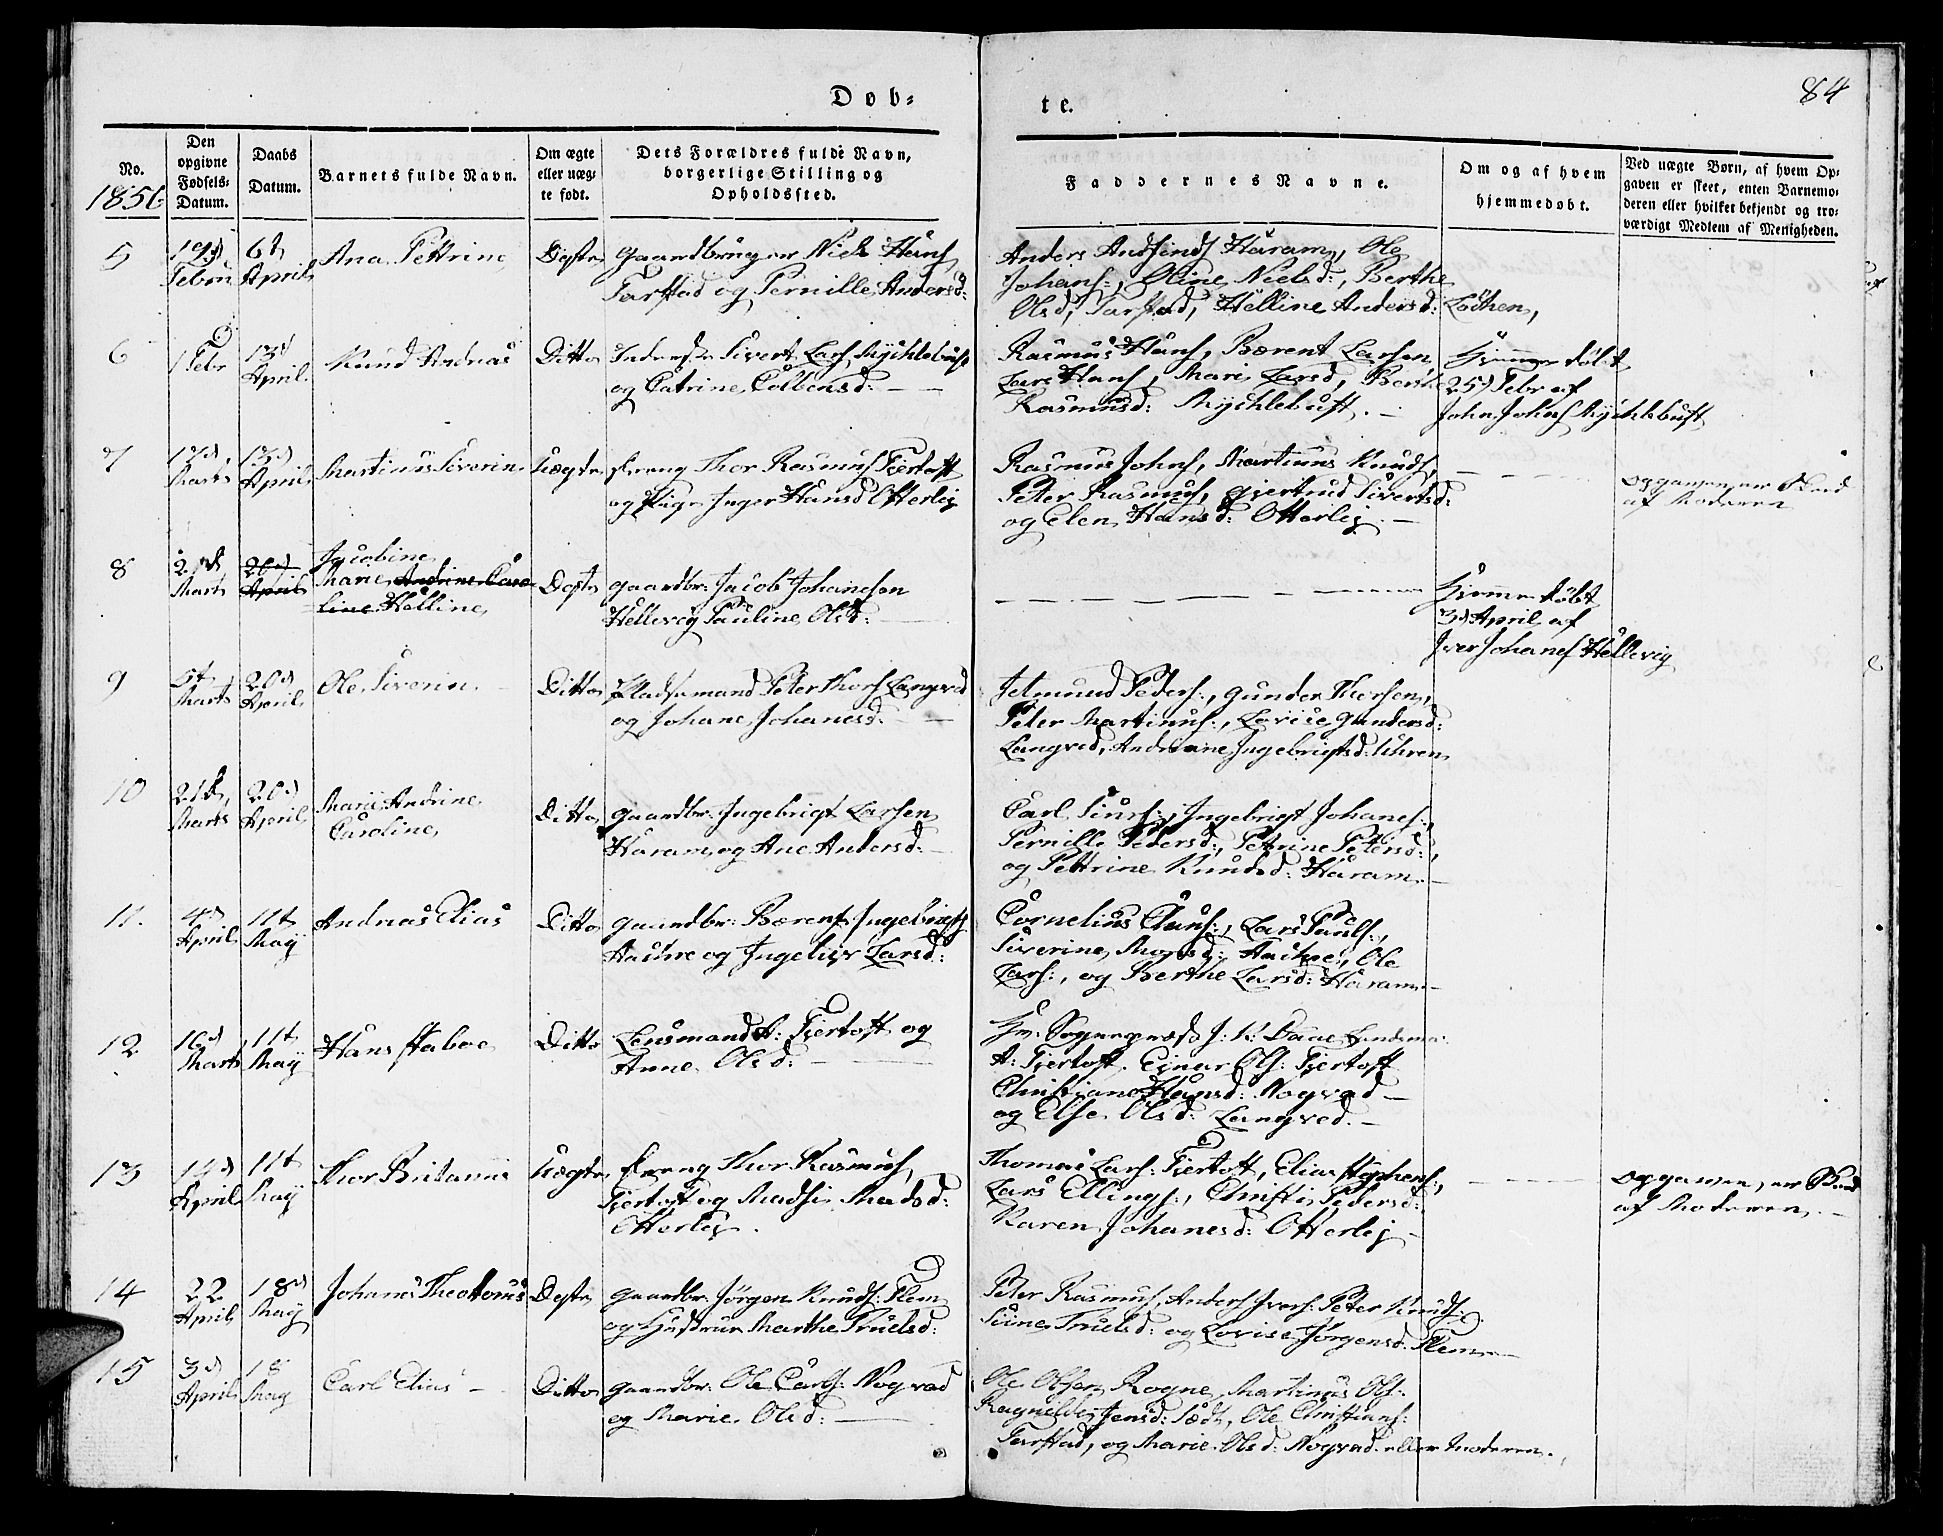 Døb=
te.
84
No.
1856
Den
opgivne
Fødsels=
Datum.
Daabs
Datum.
Barnets fulde Navn.
Om ægte
eller uæg=
te født.
Dets Forældres fulde Navn,
borgerlige Stilling og
Opholdssted.
Faddernes Navne.
Om og af hvem
hjemmedøbt.
Ved uægte Børn, af hvem Op=
gaven er skeet, enten Barnemo=
deren eller hvilket bekjendt og tro=
værdigt Medlem af Menigheden.
5
19d
Febru
6t
April
Ana Pettrine
Degte
Gaardbruger Niels Hans
Farstad og Pernille Andersd:
Anders Haram, Ole
Johans:, Oline Nielsd:, Berthe
Olsd, Farstad, Helline Andersd: Løchen,
6
1 Febr
13d
April
Knud Andreas
Ditto
Inderst Sivert Lars Mychlebust
og Catrine Colbensd: —
Rasmus Hans, Bærent Larsen,
Lars Hans, Mari Larsd, Berthe
Rasmusd: Mychlebust. —
Hjemme døbt
25d Febr af
John Johns Mychlebust
7
17d
Marts
13d
April
Martinus Siverin
Uægte
Dreng Thor Rasmus Fjertoft
og Pige Inger Hansd Otterlej
Rasmus Johns, Martinus Knuds,
Peter Rasmus, Gjertrud Sivertsd:
og Elen Hansd: Otterlej. —
Opgaven er skeed
af Moderen
8
21d
Marts
20d
April
Jacobine
Marie Andrine Caro
line Helline
Degte
Gaardbr: Jacob Johansen
Hellevig Pauline Olsd: —
Hjemme døbt
3d April af
Iver Johanes Hellevig
9
5t
Marts
20d
April
Ole Siverin
Ditto
Pladsemand Peter Thors Langved
og Johane Johanesd: —
Jetmund Peders:, Gunder Thorsen,
Peter Martinus:, Lovise Gundersd:
Langved, Andriane Ingebrigtsd: Uhren
10
21d
Marts
20d
April
Marie Andrine
Caroline
Ditto
Gaardbr: Ingebrigt Larsen
Haram og Ane Andersd: —
Carl Siurs:, Ingebrigt Johanes:,
Pernille Pedersd:, Petrine Petersd:,
og Pettrine Knudsd: Haram —
11.
4d
April
11t
May
Andreas Elias
Ditto
Gaardbr: Bærent Ingebrigts
Hauke og Ingeliev Larsd:
Cornelius Claus:, Lars Pauls:,
Siverine Monsd: Hauke, Ole
Lars:, og Berthe Larsd: Haram —
12
16d
Marts
11t
May
Hans Staboe
Ditto
Lensmand A: Fjertoft og
Anne Olsd: —
Hr: Sognepræst J: K: Daae
A: Fjertoft. Ejnar Ols: Fjertoft
Christiane Hansd: Nogvad —
og Else Olsd: Langved. —
13
14d
April
11t
May
Thor Britanus
Uægte
Dreng Thor Rasmus,
Fjertoft og Madsi Madsd:
Otterlej.
Thomas Lars: Fjertoft, Elias Stephens:,
Lars Ellings:, Christi Pedersd:
Karen Johanesd: Otterlej —
Opgaven er skeed
af Moderen. —
14
22
April
18d
May
Johanes Theodorus
Degte
Gaardbr: Jørgen Knuds: Flem
og Hustrue Marthe Truelsd:
Peter Rasmus, Anders Ivers: Peter Knuds:
Siune Truelsd: og Lovise Jørgensd: Flem —
15
3d
April
18
May
Carl Elias —
Ditto
Gaardbr: Ole Carls: Nogvad
og Marie Olsd: —
Ole Olsen Rogne, Martinus Ols:
Ragnilde Jensd: Sædt, Ole Christians:
Farstad, og Marie Olsd: Nogvad eller Moderen.